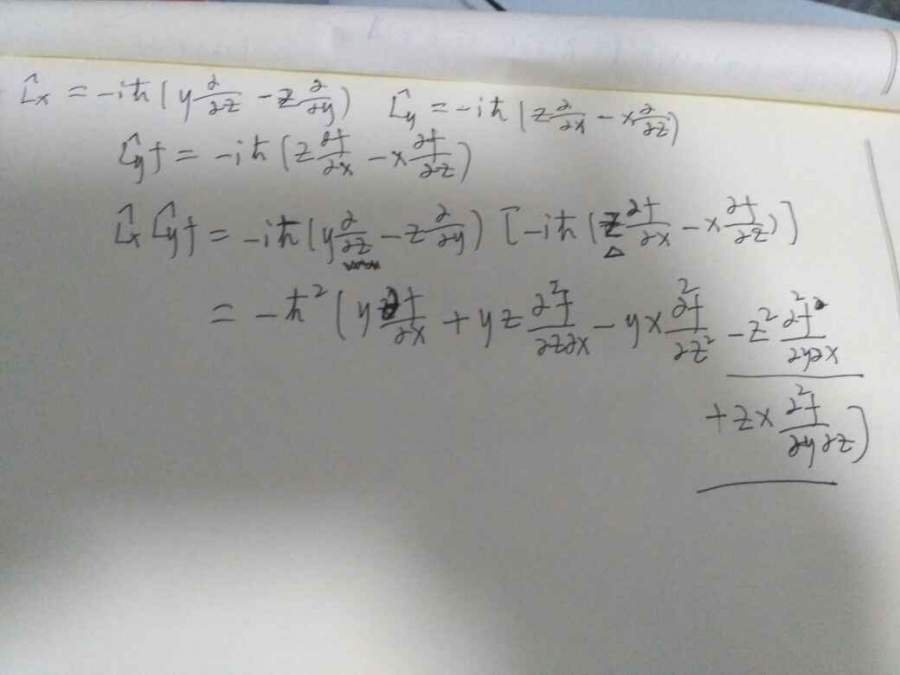 L̂x = -iħ(y ∂/∂z - z ∂/∂y) L̂y = -iħ(z ∂/∂x - x ∂/∂z)
L̂yf = -iħ(z ∂f/∂x - x ∂f/∂z)
L̂x L̂yf = -iħ(y ∂/∂z - z ∂/∂y) [-iħ(z ∂f/∂x - x ∂f/∂z)]
= -ħ²(y ∂f/∂x + yz ∂²f/∂z∂x - yx ∂²f/∂z² - z² ∂²f/∂y∂x
+ zx ∂²f/∂y∂z)